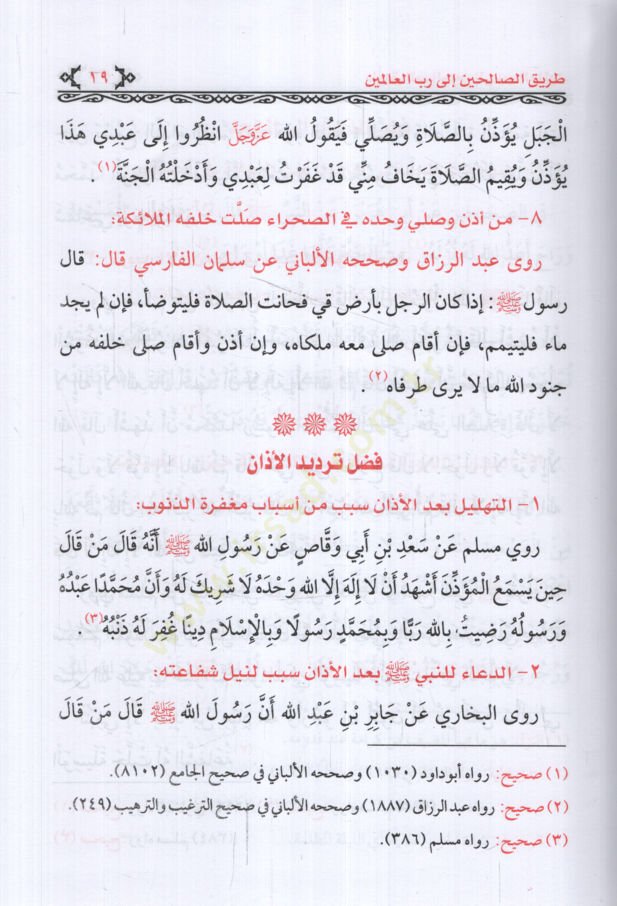 طريق الصالحين إلى رب العالمين
١٩
الْجَبَلِ يُؤَذِّنُ بِالصَّلَاةِ وَيُصَلِّي فَيَقُولُ الله عَزَّوَجَلَّ انْظُرُوا إِلَى عَبْدِي هَذَا
يُؤَذِّنُ وَيُقِيمُ الصَّلَاةَ يَخَافُ مِنِّي قَدْ غَفَرْتُ لِعَبْدِي وَأَدْخَلْتُهُ الْجَنَّةَ (١).
٨- من أذن وصلي وحده في الصحراء صلَّت خلفه الملائكة:
روى عبد الرزاق وصححه الألباني عن سلمان الفارسي قال: قال
رسول ﷺ: إذا كان الرجل بأرض قي فحانت الصلاة فليتوضأ، فإن لم يجد
ماء فليتيمم، فإن أقام صلى معه ملكاه، وإن أذن وأقام صلى خلفه من
جنود الله ما لا يرى طرفاه (٢).
فضل ترديد الأذان
١- التهليل بعد الأذان سبب من أسباب مغفرة الذنوب:
روي مسلم عَنْ سَعْدِ بْنِ أَبِي وَقَّاصٍ عَنْ رَسُولِ الله ﷺ أَنَّهُ قَالَ مَنْ قَالَ
حِينَ يَسْمَعُ الْمُؤَذِّنَ أَشْهَدُ أَنْ لَا إِلَهَ إِلَّا الله وَحْدَهُ لَا شَرِيكَ لَهُ وَأَنَّ مُحَمَّدًا عَبْدُهُ
وَرَسُولُهُ رَضِيتُ بِالله رَبًّا وَبِمُحَمَّدٍ رَسُولًا وَبِالْإِسْلَامِ دِينًا غُفِرَ لَهُ ذَنْبُهُ (٣).
٢- الدعاء للنبي ﷺ بعد الأذان سبب لنيل شفاعته:
روى البخاري عَنْ جَابِرِ بْنِ عَبْدِ الله أَنَّ رَسُولَ الله ﷺ قَالَ مَنْ قَالَ
(١) صحيح: رواه أبو داود (١٠٣٠) وصححه الألباني في صحيح الجامع (٨١٠٢).
(٢) صحيح: رواه عبد الرزاق (١٨٨٧) وصححه الألباني في صحيح الترغيب والترهيب (٢٤٩).
(٣) صحيح: رواه مسلم (٣٨٦).